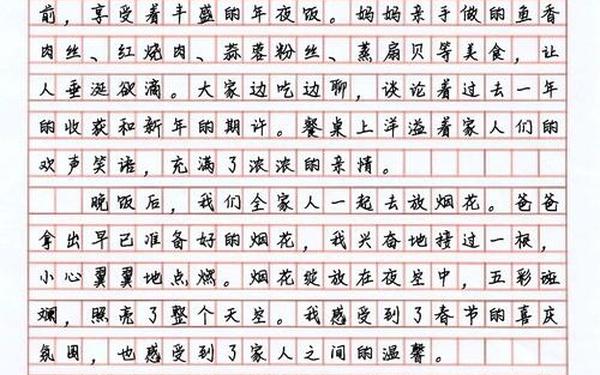 前，享受着丰盛的年夜饭。妈妈亲手做的鱼香
肉丝、红烧肉、蒜蓉粉丝、蒸扇贝等美食，让
人垂涎欲滴。大家边吃边聊，谈论着过去一年
的收获和新年的期许。餐桌上洋溢着家人们的
欢声笑语，充满了浓浓的亲情。
晚饭后，我们全家人一起去放烟花。爸爸
拿出早已准备好的烟花，我兴奋地接过一根，
小心翼翼地点燃。烟花绽放在夜空中，五彩斑
斓，照亮了整个天空。我感受到了春节的喜庆
氛围，也感受到了家人之间的温馨。